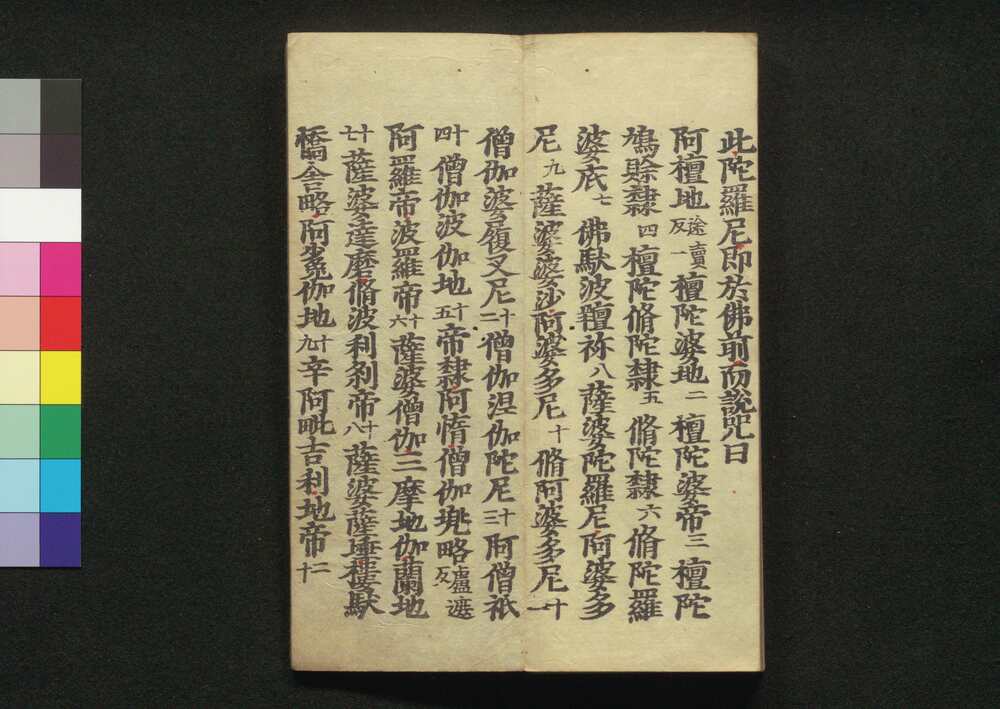 此陀羅尼即於佛前而說呪曰
阿檀地途賣反一檀陀婆地二檀陀婆帝三檀陀
鳩賒隸四檀陀脩陀隸五脩陀隸六脩陀羅
婆底七佛馱波羶祢八薩婆陀羅尼阿婆多
尼九薩婆婆沙阿婆多尼十脩阿婆多尼十一
僧伽婆履叉尼十二僧伽涅伽陀尼十三阿僧祇
十四僧伽波伽地十五帝隸阿惰僧伽兠略盧遮反
阿羅帝波羅帝十六薩婆僧伽三摩地伽蘭地
十七薩婆達磨脩波利剎帝十八薩婆薩埵樓馱
憍舍略阿㝹伽地十九辛阿毗吉利地帝二十